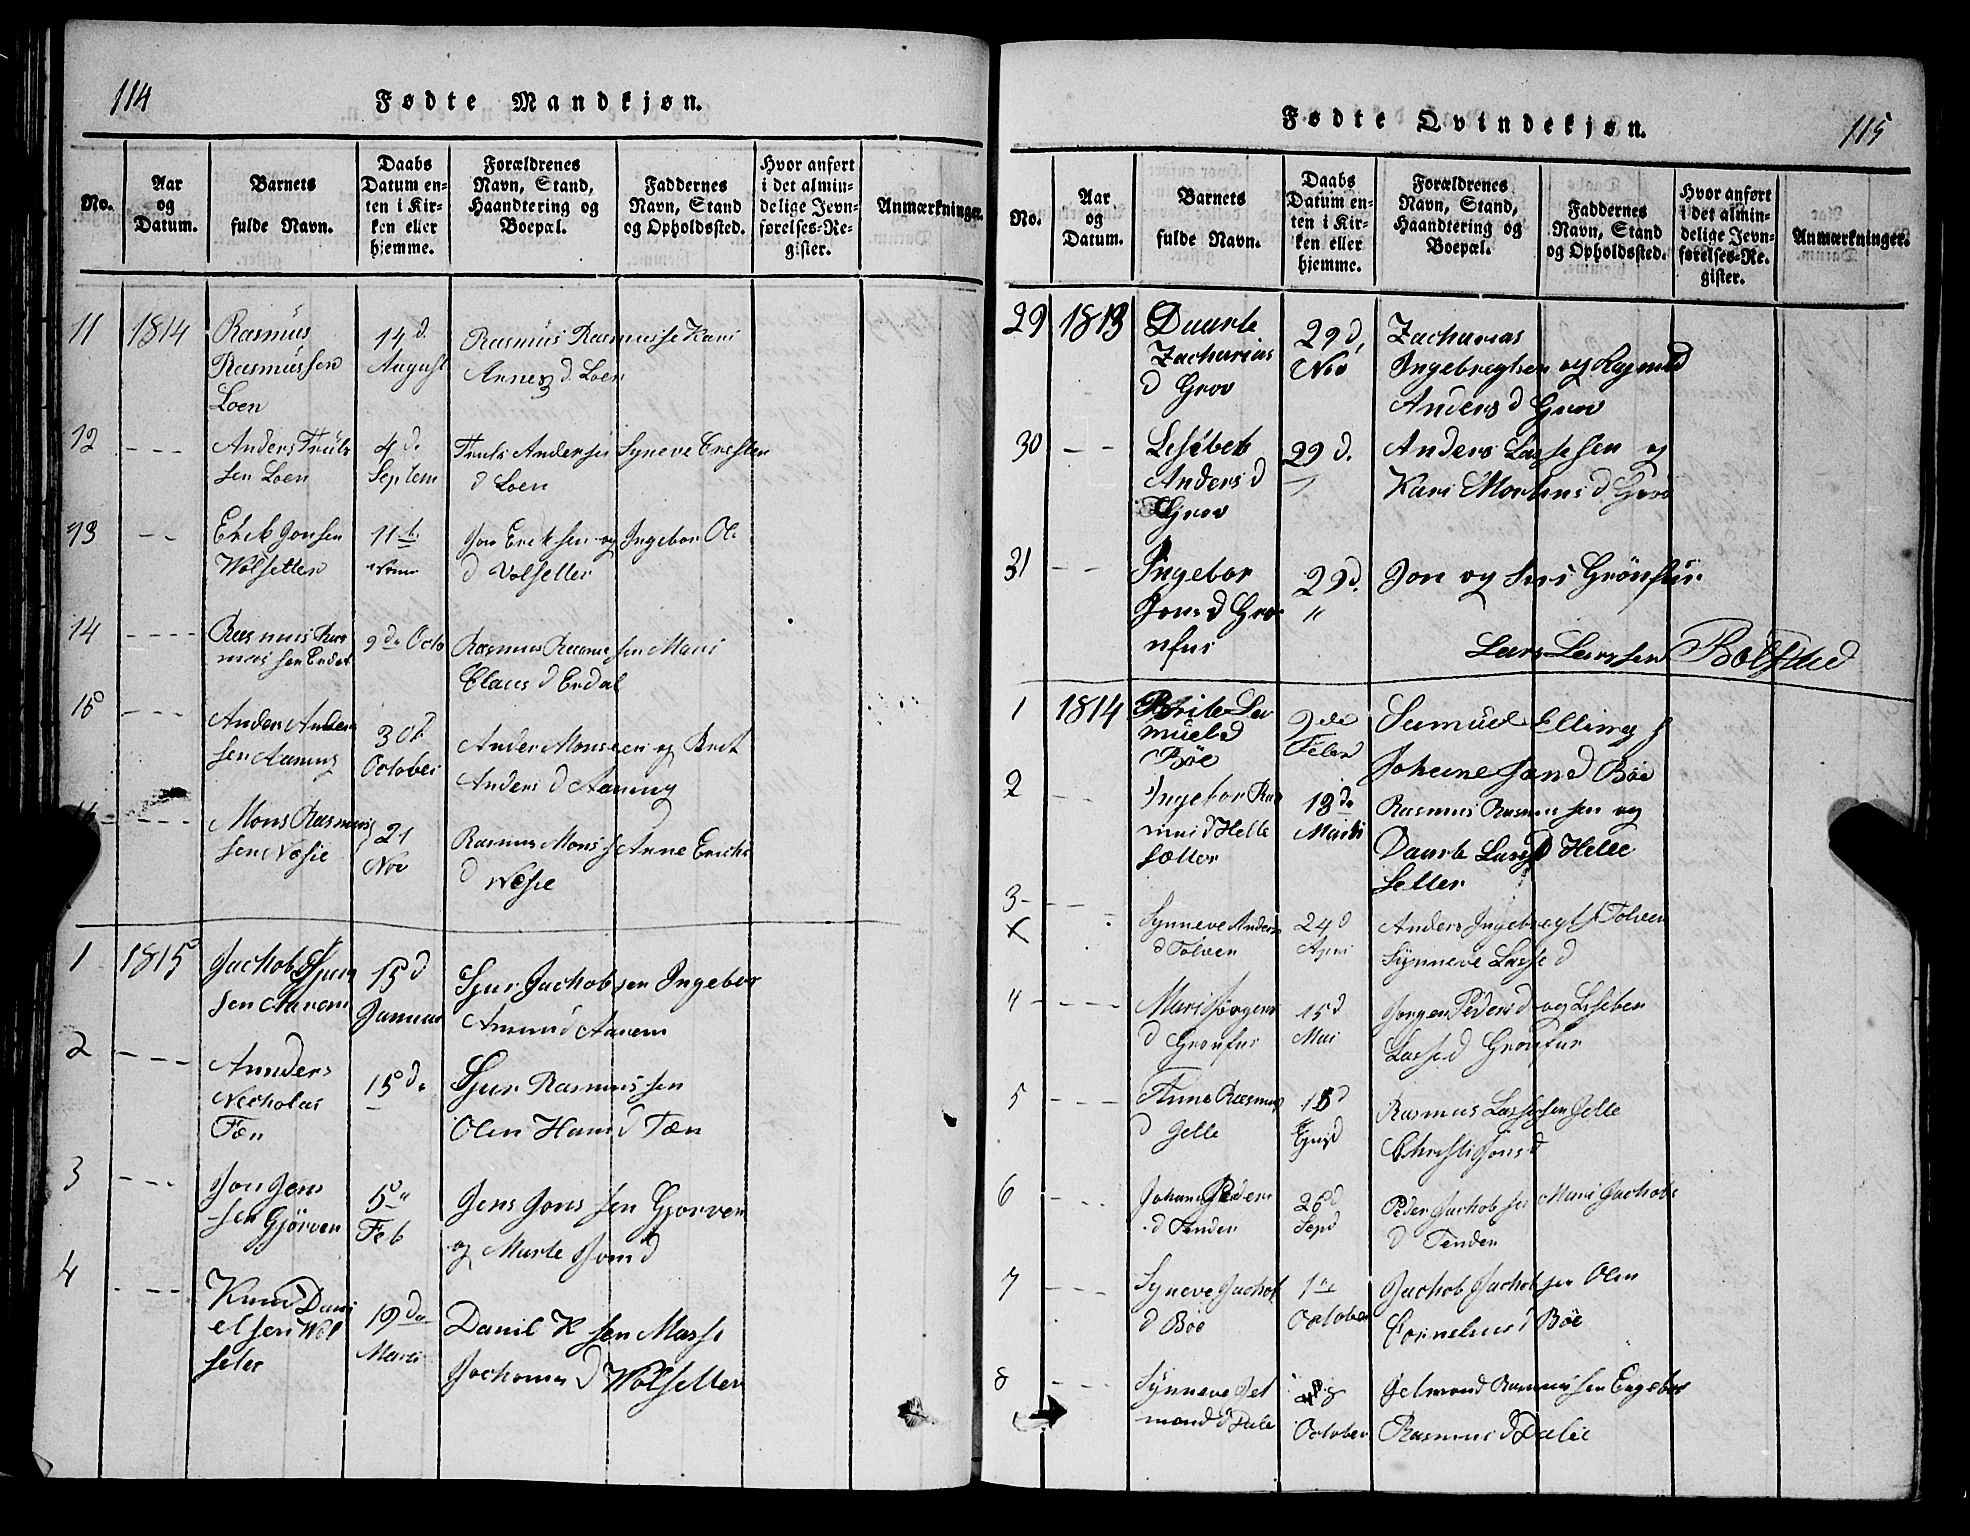 114
Fødte Mandkjøn.
No.
Aar
og
Datum.
Barnets
fulde Navn.
Daabs
Datum en-
ten i Kir-
ken eller
hjemme.
Forældrenes
Navn, Stand,
Haandtering og
Boepæl.
Faddernes
Navn, Stand
og Opholdssted.
Hvor anført
i det almin-
delige Jevn-
førelses-Re-
gister.
Anmærkninger.
11 1814 Rasmus
Rasmussen
Loen
14 d.
August
Rasmus Rasmusse Kari
Annes d. Loen
12 - - - Anders Truls
sen Loen
4 d.
Septem
Truls Andersen Syneve
d Loen
13 - - Erik Jonsen
Wolsetter
11
Jon Eriksen og Ingebor Ol
d Volsetter
14 - - - - Rasmus Ras
mussen Erdal
9 de Octo
Rasmus Rasmussen Mari
Claus d Erdal
15 - - - Anders Anders
sen Aaning
30
October
Ander Monsen og Brit
Anders d Aaning
16 - - - - Mons Rasmus
sen Nesie
21
Nov
Rasmus Mons s Anne Erichs
d Nesie
1 1815 Jachob Sjur
sen Aarem
15 d
Januar
Sjur Jachobsen Ingebor
Amund Aarem
2 - - - Annders
Nicholai
Tæn
15 de
Sjur Rasmussen
Olin Hans d Tæn
3 - - - Jon Jens
sen Gjörven
5
Feb
Jens Jons sen Gjorven
og Marte Jons d
4 - - - Knud Dani
elsen Wol
seter
19 de
Marts
Danil K sen
Jochoms d Wolsetter
115
Fødte Qvindekjøn.
No.
Aar
og
Datum.
Barnets
fulde Navn.
Daabs
Datum en-
ten i Kir-
ken eller
hjemme.
Forældrenes
Navn, Stand,
Haandtering og
Boepæl.
Faddernes
Navn, Stand
og Opholdssted.
Hvor anført
i det almin-
delige Jevn-
førelses-Re-
gister.
Anmærkninger.
29 1813 Daarte
Zacharias
d Grov
29 d.
Nov
Zacharias
Ingebregtsen og Ragnild
Anders d Grov
30 - - Lesebet
Anders d
Grov
29 d.
"
Anders Lassesen og
Kari Mortens d Grov
31 - - Ingebor
Jons d Gro
nfur
29 d.
"
Jon og Grönfur
Lars Larssen Bolstad
1 1814 Brite Sa
muels d
Böe
9 de
Feber
Samuel Elling s
Johane Jans d Böe
2 - - Ingebor Ras
mus d Helle
sætter
13 de
Marts
Rasmus Rasmussen og
Daarte Lasse d Helle
setter
3 - - -
x
Synneve Anders
d Tolven
24 d
April
Anders Ingebregt s Tolven
Synneve Lasse d
4 - - - - Mari Jörgens
d Gronfur
15 d
Mai
Jorgen Peders og Leseben
Lasse d Gronfur
5 - - - Anne Rasmus
d Jelle
18 d
Rasmus Lassesen Jelle
Christi Jons d
6 - - - Johan Peders
d Tenden
26 d
Sept
Peder Jachob sen Mari Jachobs
d Tenden
7 - - - Syneve Jachob
d Böe
1
October
Jachob Jachobsen Olin
Cornelius d Böe
8 - - - Synneve Jet
mond d Dale
October
Jetmond Rasmussen Engebor
Rasmus d Dalie